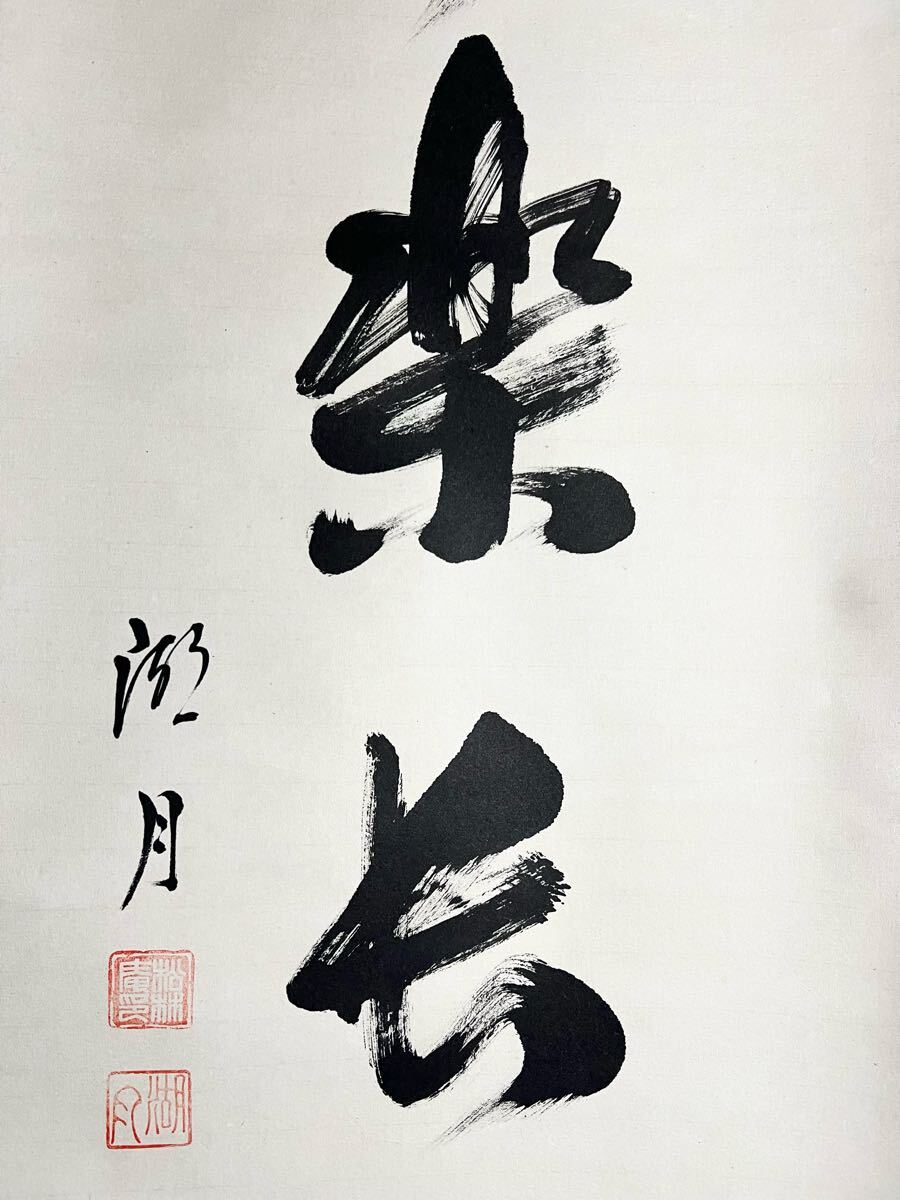 楽長
湖月
湖月